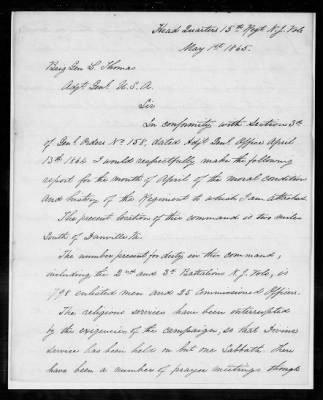 Head Quarters 15th Regt N.J. Vols
May 1st 1865.
Brig Gen L. Thomas
Adjt Genl. U.S.A.
Sir
In conformity with Section 3d
of Genl Orders No 158, dated Adjt Genl Office April
13th 1864 I would respectfully make the following
report for the month of April of the moral condition
and history of the Regiment to which I am attached.
The present location of this command is two miles
South of Danville Va.
The number present for duty in this command,
including the 2nd and 3d Battalions N.J. Vols, is
798 enlisted men and 25 Commissioned Officers.
The religious services have been interrupted
by the exigencies of the campaign, so that Divine
service has been held on but one Sabbath. There
have been a number of prayer meetings though